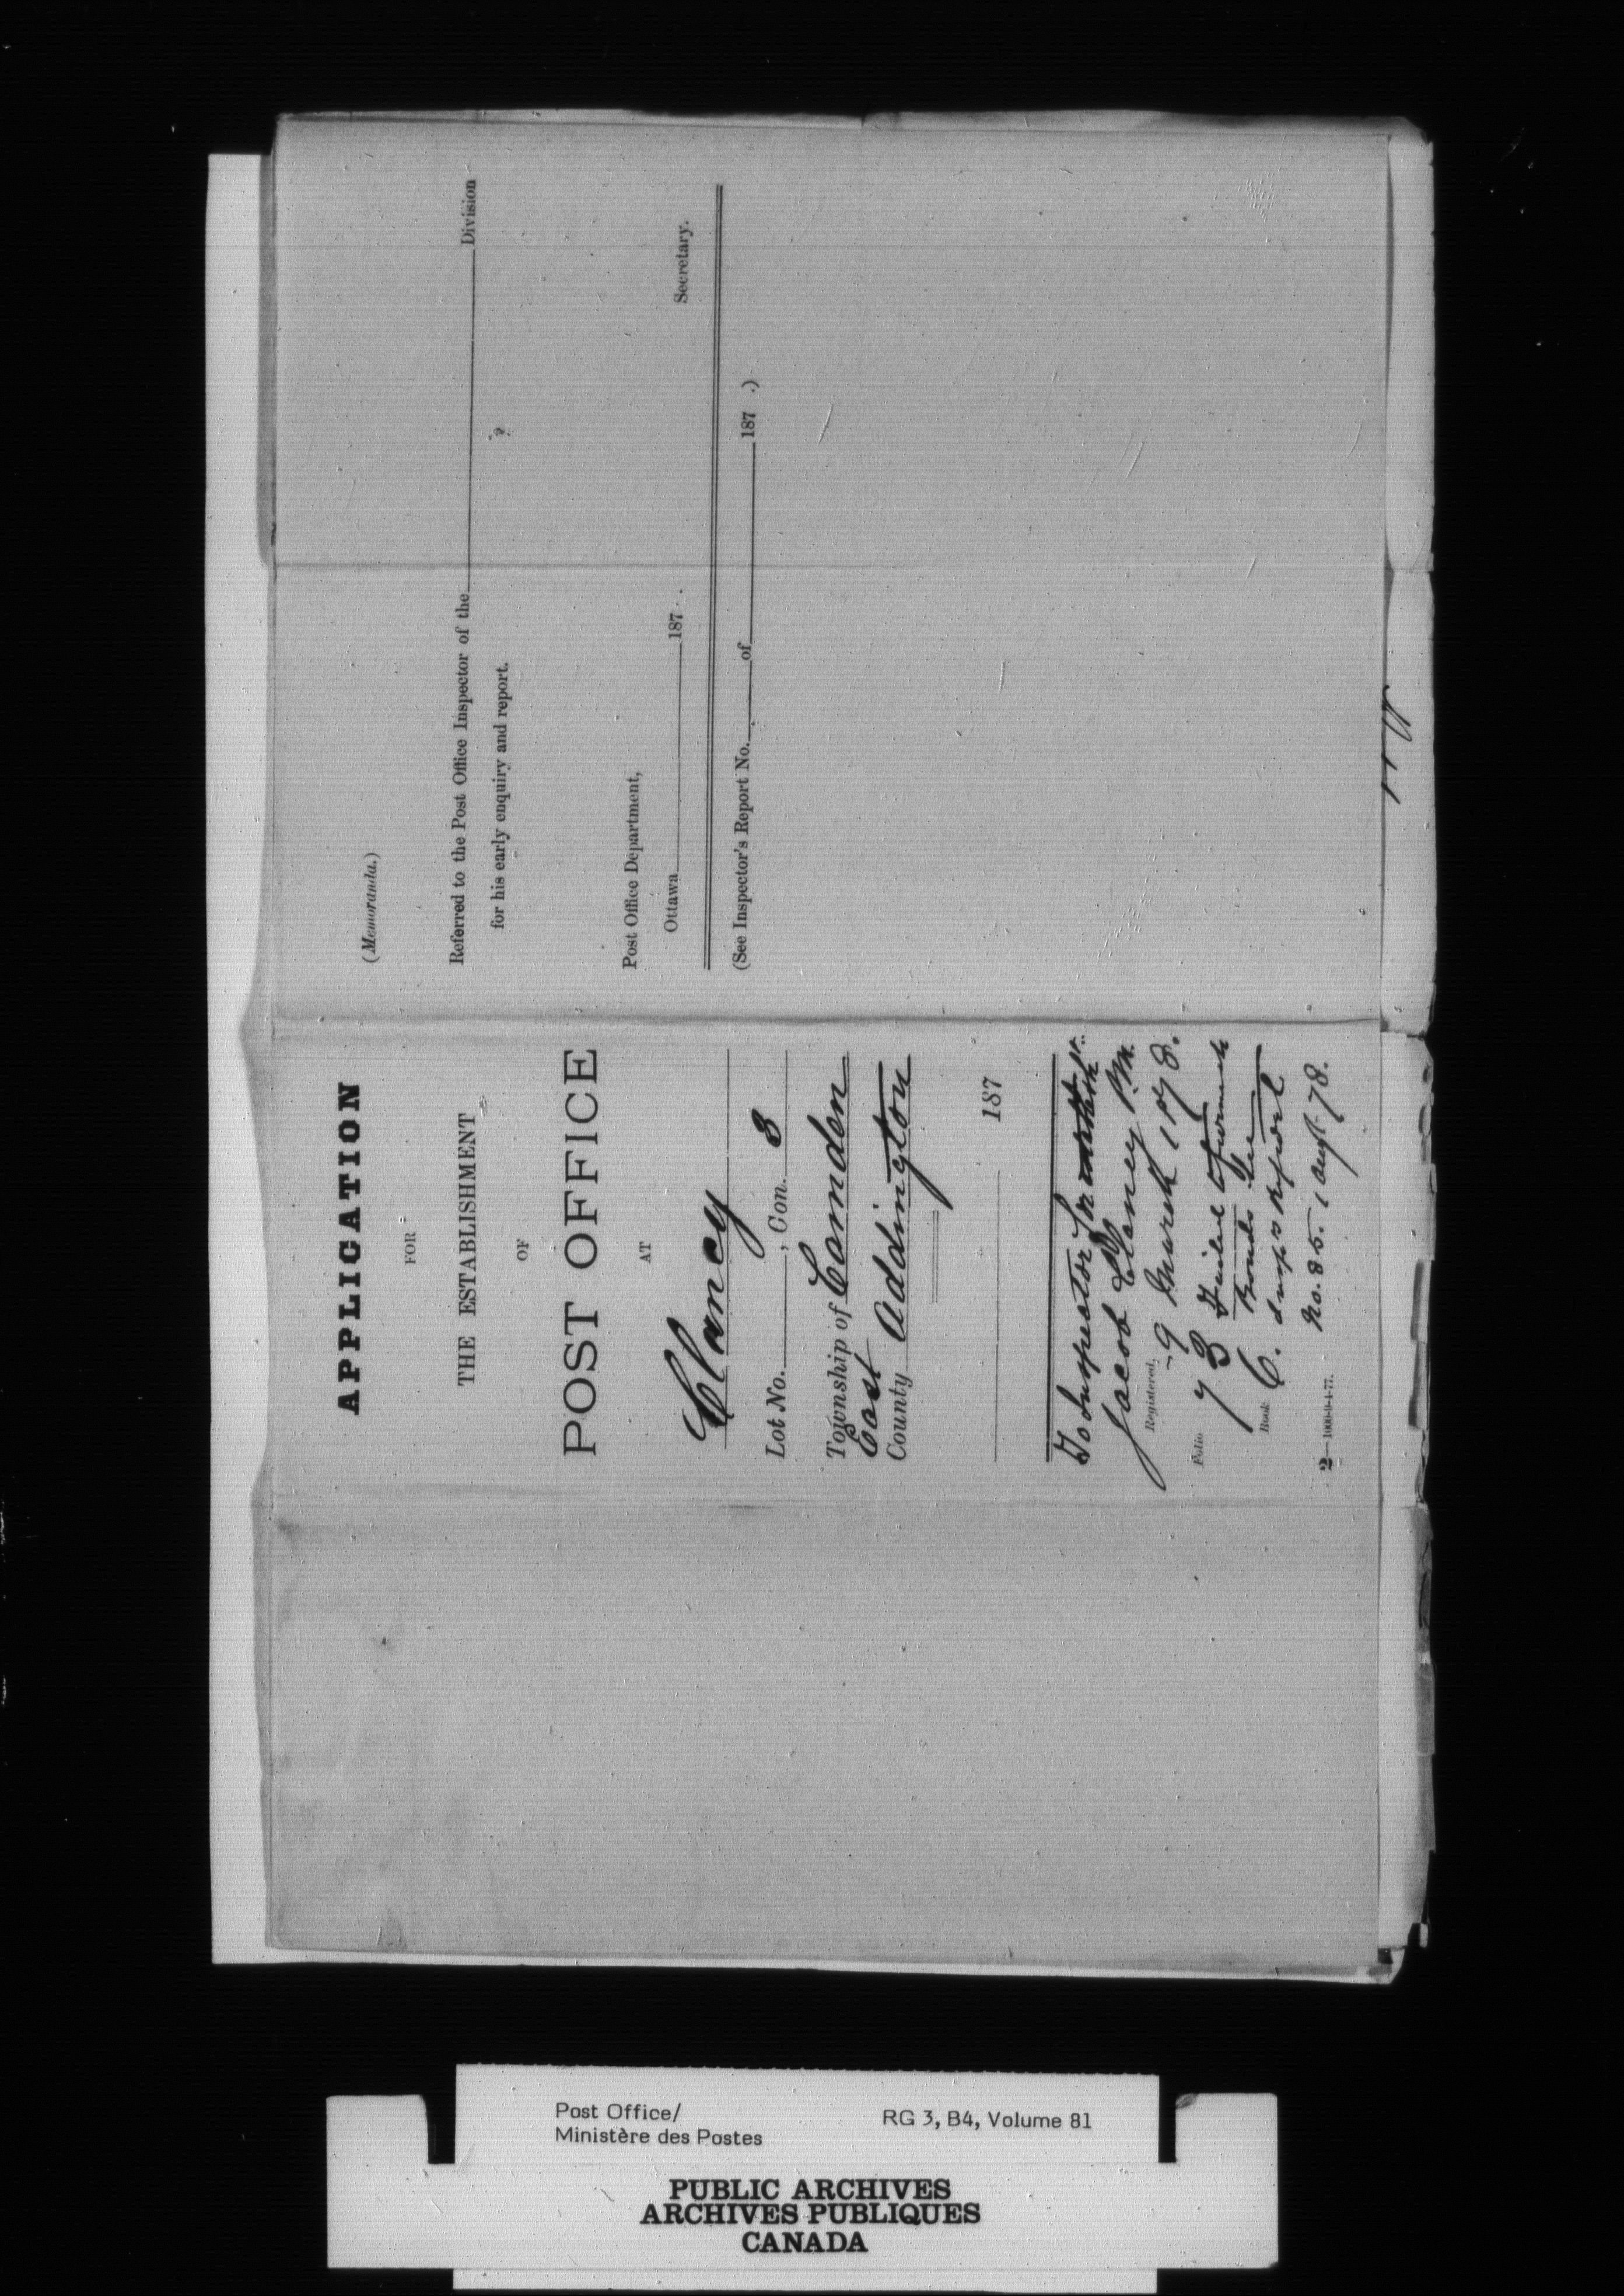 (Memoranda.)
Referred to the Post Office Inspector of the Division
for his early enquiry and report.
Post Office Department,
Ottawa 187 .
Secretary.
(See Inspector's Report No. of 187 .)
APPLICATION
FOR
THE ESTABLISHMENT
OF
POST OFFICE
AT
Clancy
Lot No. , Con. 3
Township of Camden
East
County Addington
187
To Inspector for
Jacob Clancy P.M.
Registered, 9 March 1878.
Folio 73
Bonds
Book C. Insp's report
No. 85. 1 Augt 78.
2—1000-9-4-77.
Post Office/
Ministère des Postes
RG 3, B4, Volume 81
PUBLIC ARCHIVES
ARCHIVES PUBLIQUES
CANADA